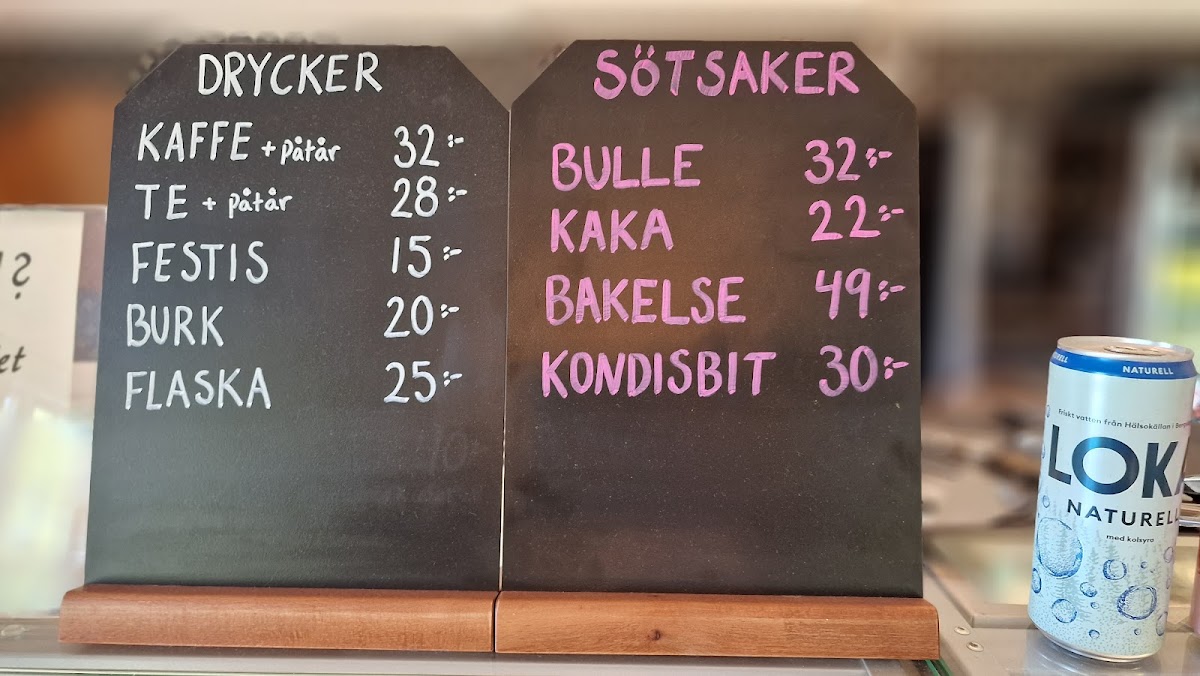 DRYCKER
KAFFE + påtår 32:-
TE + påtår 28:-
FESTIS 15:-
BURK 20:-
FLASKA 25:-
SÖTSAKER
BULLE 32:-
KAKA 22:-
BAKELSE 49:-
KONDISBIT 30:-
NATURELL
Friskt vatten från Hälsokällan i
LOKA
NATURELL
med kolsyra